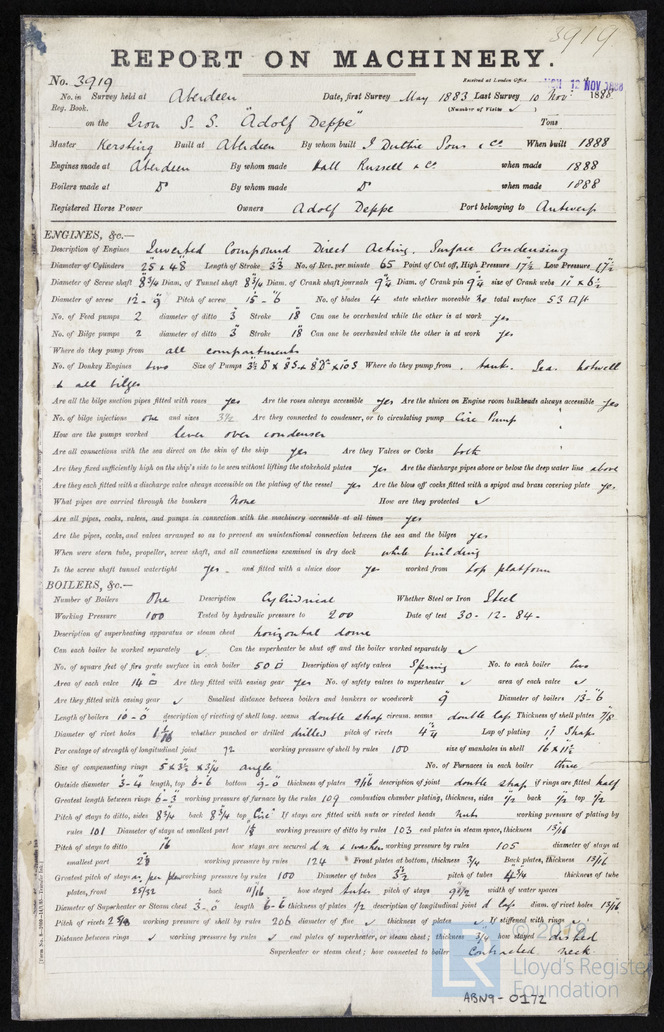 3919
REPORT ON MACHINERY.
No. 3919 Received at London Office 12 NOV 1888
No. in Survey held at Aberdeen Date, first Survey May 1883 Last Survey 10 Nov. 1888
Reg. Book. (Number of Visits ✓ )
on the Iron S.S. "Adolf Deppe" Tons
Master Kersting Built at Aberdeen By whom built J Duthie Sons & Co. When built 1888
Engines made at Aberdeen By whom made Hall Russell & Co. when made 1888
Boilers made at Do By whom made Do when made 1888
Registered Horse Power Owners Adolf Deppe Port belonging to Antwerp
ENGINES, &c.—
Description of Engines Inverted Compound Direct Acting. Surface Condensing
Diameter of Cylinders 25 & 48 Length of Stroke 33 No. of Rev. per minute 65 Point of Cut off, High Pressure 17½ Low Pressure 17½
Diameter of Screw shaft 8¾ Diam. of Tunnel shaft 8¾ Diam. of Crank shaft journals 9¼ Diam. of Crank pin 9¼ size of Crank webs 11 x 6½
Diameter of screw 12-9 Pitch of screw 15-6 No. of blades 4 state whether moveable no total surface 53 □ft
No. of Feed pumps 2 diameter of ditto 3 Stroke 18 Can one be overhauled while the other is at work yes
No. of Bilge pumps 2 diameter of ditto 3 Stroke 18 Can one be overhauled while the other is at work yes
Where do they pump from all compartments
No. of Donkey Engines two Size of Pumps Where do they pump from tank. Sea. hotwell
& all bilges
Are all the bilge suction pipes fitted with roses yes Are the roses always accessible yes Are the sluices on Engine room bulkheads always accessible yes
No. of bilge injections one and sizes 3½ Are they connected to condenser, or to circulating pump Circ Pump
How are the pumps worked lever over condenser
Are all connections with the sea direct on the skin of the ship yes Are they Valves or Cocks both
Are they fixed sufficiently high on the ship's side to be seen without lifting the stokehold plates yes Are the discharge pipes above or below the deep water line above
Are they each fitted with a discharge valve always accessible on the plating of the vessel yes Are the blow off cocks fitted with a spigot and brass covering plate yes
What pipes are carried through the bunkers None How are they protected ✓
Are all pipes, cocks, valves, and pumps in connection with the machinery accessible at all times yes
Are the pipes, cocks, and valves arranged so as to prevent an unintentional connection between the sea and the bilges yes
When were stern tube, propeller, screw shaft, and all connections examined in dry dock while building
Is the screw shaft tunnel watertight yes - and fitted with a sluice door yes worked from top platform
BOILERS, &c.—
Number of Boilers One Description Cylindrical Whether Steel or Iron Steel
Working Pressure 100 Tested by hydraulic pressure to 200 Date of test 30-12-84-
Description of superheating apparatus or steam chest horizontal dome
Can each boiler be worked separately ✓ Can the superheater be shut off and the boiler worked separately ✓
No. of square feet of fire grate surface in each boiler 50 □ Description of safety valves Spring No. to each boiler two
Area of each valve 14 □ Are they fitted with easing gear yes No. of safety valves to superheater ✓ area of each valve ✓
Are they fitted with easing gear ✓ Smallest distance between boilers and bunkers or woodwork 9 Diameter of boilers 13-6
Length of boilers 10-0 description of riveting of shell long. seams double strap circum. seams double lap Thickness of shell plates 7/8
Diameter of rivet holes 1 1/16 whether punched or drilled drilled pitch of rivets 4¼ Lap of plating 11 Strap
Per centage of strength of longitudinal joint 72 working pressure of shell by rules 100 size of manholes in shell 16 x 11½
Size of compensating rings 5 x 3½ x 3/4 angle No. of Furnaces in each boiler three
Outside diameter 3-4 length, top 6-6 bottom 9-0 thickness of plates 9/16 description of joint double strap if rings are fitted half
Greatest length between rings 6-3 working pressure of furnace by the rules 109 combustion chamber plating, thickness, sides 1/2 back 1/2 top 1/2
Pitch of stays to ditto, sides 8¾ back 8¾ top Circ If stays are fitted with nuts or riveted heads nuts working pressure of plating by
rules 101 Diameter of stays at smallest part 1⅜ working pressure of ditto by rules 103 end plates in steam space, thickness 15/16
Pitch of stays to ditto 16 how stays are secured d n & washer working pressure by rules 105 diameter of stays at
smallest part 2⅜ working pressure by rules 124 Front plates at bottom, thickness 3/4 Back plates, thickness 13/16
Greatest pitch of stays as per plan working pressure by rules 100 Diameter of tubes 3½ pitch of tubes 4¾ thickness of tube
plates, front 25/32 back 11/16 how stayed tubes pitch of stays 9½ width of water spaces
Diameter of Superheater or Steam chest 3-0 length 6-6 thickness of plates 1/2 description of longitudinal joint d lap diam. of rivet holes 13/16
Pitch of rivets 2 5/8 working pressure of shell by rules 206 diameter of flue ✓ thickness of plates ✓ If stiffened with rings ✓
Distance between rings ✓ working pressure by rules ✓ end plates of superheater, or steam chest; thickness 3/4 how stayed dished
Superheater or steam chest; how connected to boiler Contracted neck
© 2019
LR
Lloyd's Register
Foundation
ABN9-0172